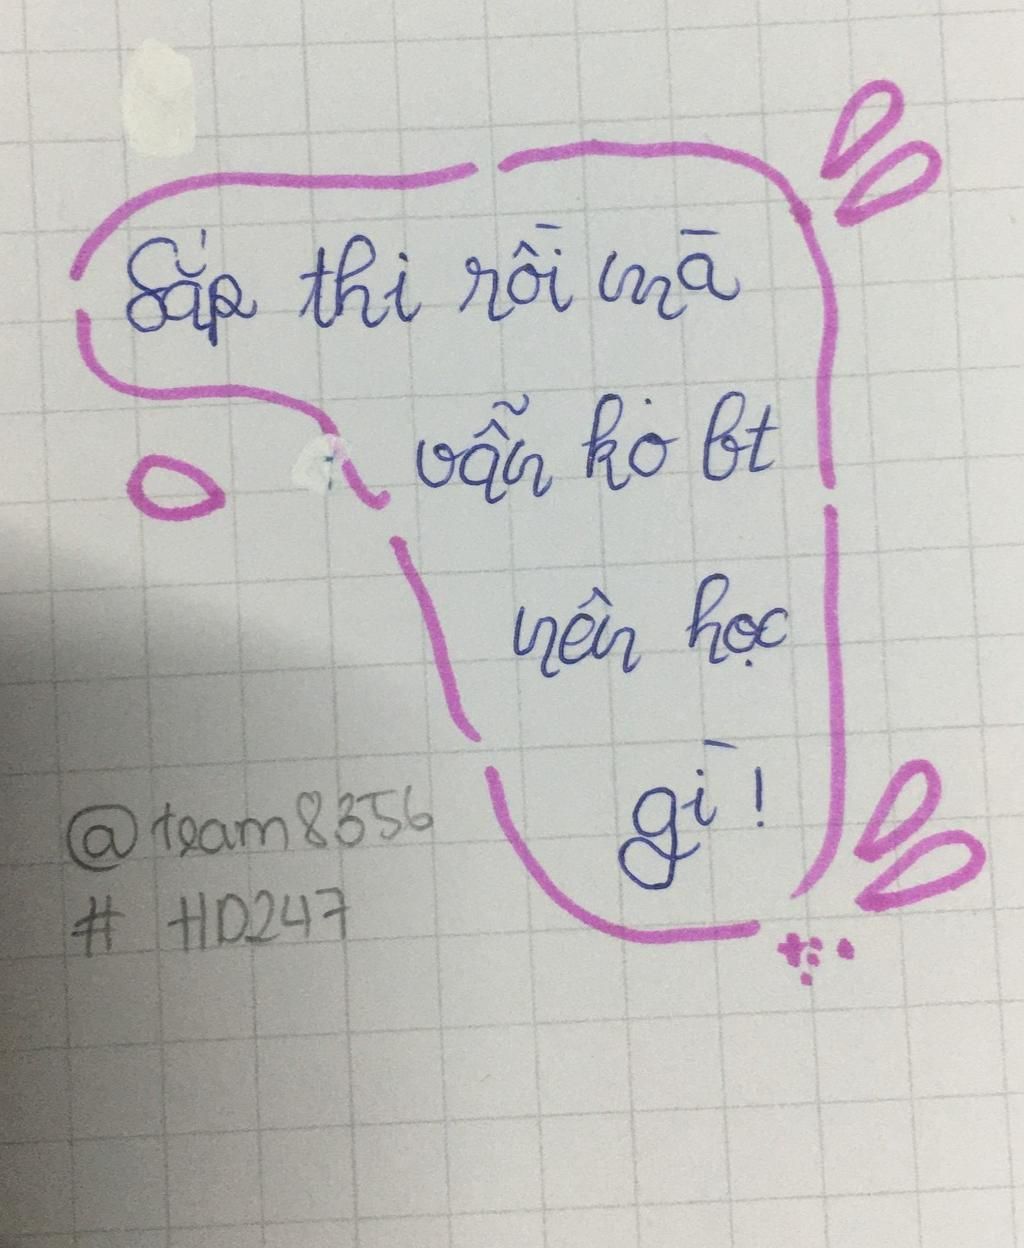 Sắp thi rồi mà
vẫn ko bt
nên học
gì !
@team8356
# HD247